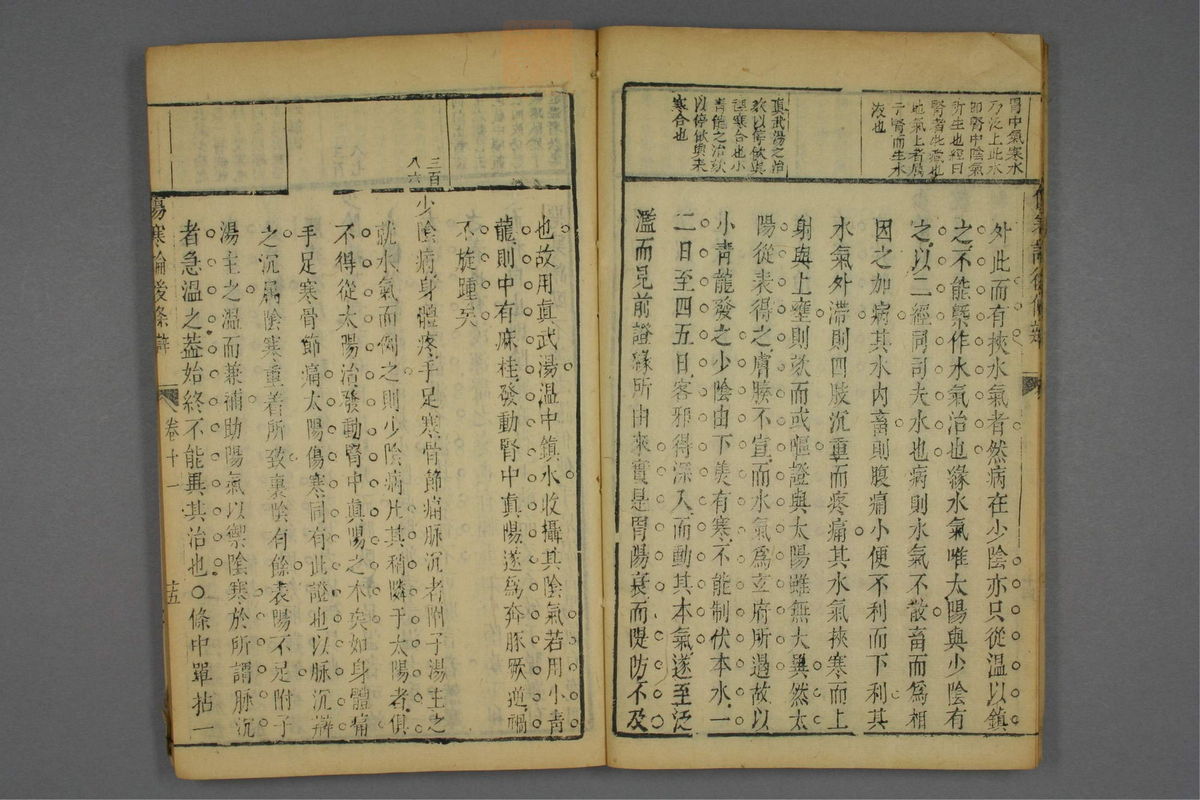 胃中氣寒水
乃泛上此水
即腎中陰氣
所生也經曰
腎者此藏也
地氣上者屬
于腎而生水
液也
真武湯之治
欬以停飲與
裡寒合也小
青龍之治欬
以停飲與表
寒合也
外此而有挾水氣者然病在少陰亦只從溫以鎮
之不能槩作水氣治也緣水氣唯太陽與少陰有
之以二經同司夫水也病則水氣不散畜而為相
因之加病其水內畜則腹痛小便不利而下利其
水氣外滯則四肢沉重而疼痛其水氣挾寒而上
射與上壅則欬而或嘔證與太陽雖無大異然太
陽從表得之膚腠不宣而水氣為玄府所遏故以
小青龍發之少陰由下焦有寒不能制伏本水一
二日至四五日客邪得深入而動其本氣遂至泛
濫而見前證緣所由來實是胃陽衰而隄防不及
三百
八六
也故用真武湯溫中鎮水收攝其陰氣若用小青
龍則中有麻桂發動腎中真陽遂為奔豚厥逆禍
不旋踵矣
少陰病身體疼手足寒骨節痛脉沉者附子湯主之
就水氣而例之則少陰病凡其稍隣于太陽者俱
不得從太陽治發動腎中真陽之本矣如身體痛
手足寒骨節痛太陽傷寒同有此證也以脉沉辦
之沉属陰寒重着所致裏陰有餘表陽不足附子
湯主之溫而兼補助陽氣以禦陰寒於所謂脉沉
者急溫之葢始終不能異其治也○條中單拈一
傷寒論後條辯
卷十一
十五